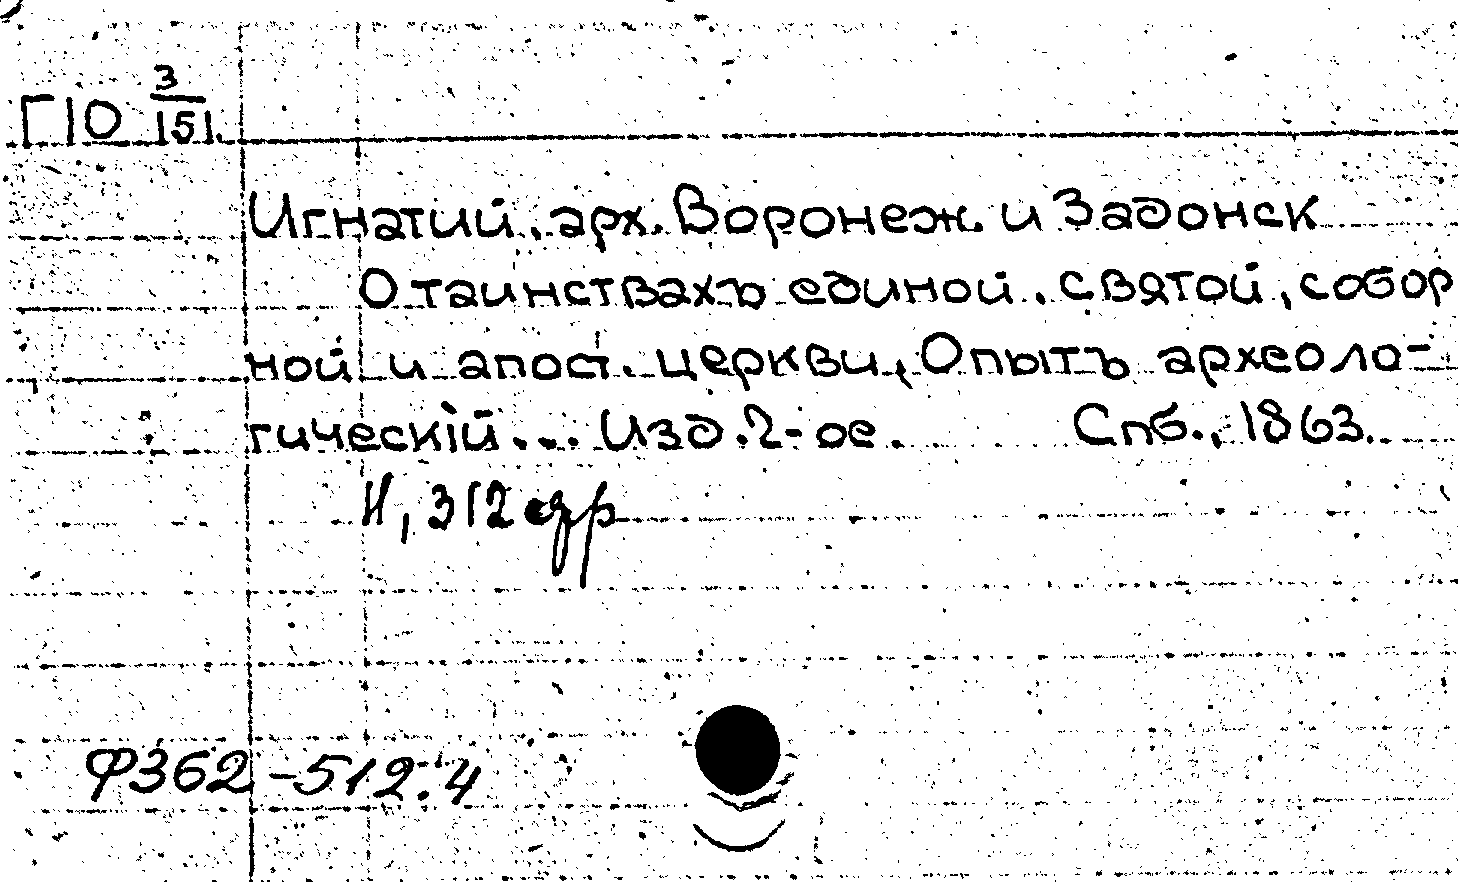 Г10 3/151.
Игнатий, арх. Воронеж. и Задонск
О таинствахъ единой, святой, собор
ной и апост. церкви, Опытъ археоло-
гическiй... Изд. 2-ое. Спб., 1863.
II, 312 стр
Ф362-512.4